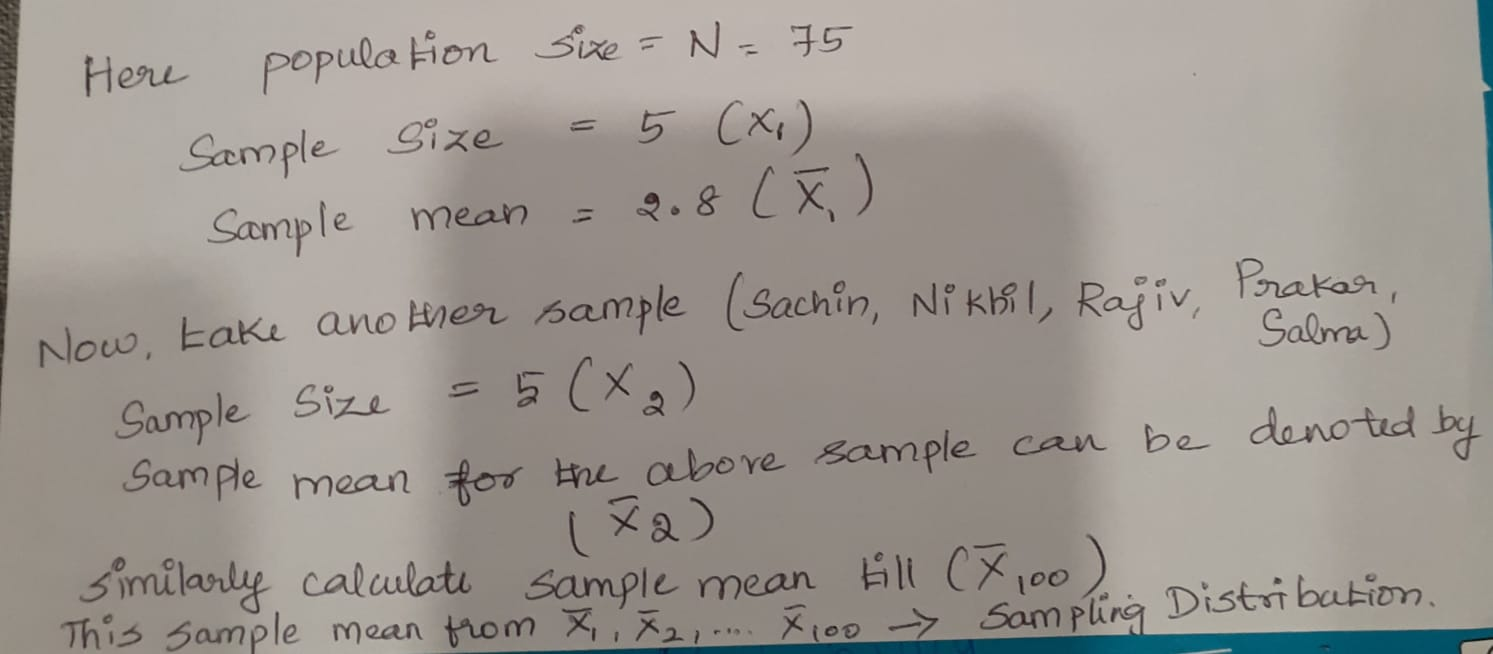 Here population size = N = 75
Sample Size = 5 (X₁)
Sample mean = 2.8 (X̄₁)
Now, take another sample (Sachin, Nikhil, Rajiv, Prakar,
Salma)
Sample Size = 5 (X₂)
Sample mean for the above sample can be denoted by
(X̄2)
Similarly calculate sample mean till (X̄₁₀₀)
This sample mean from X̄₁, X̄₂, .... X̄₁₀₀ → Sampling Distribution.